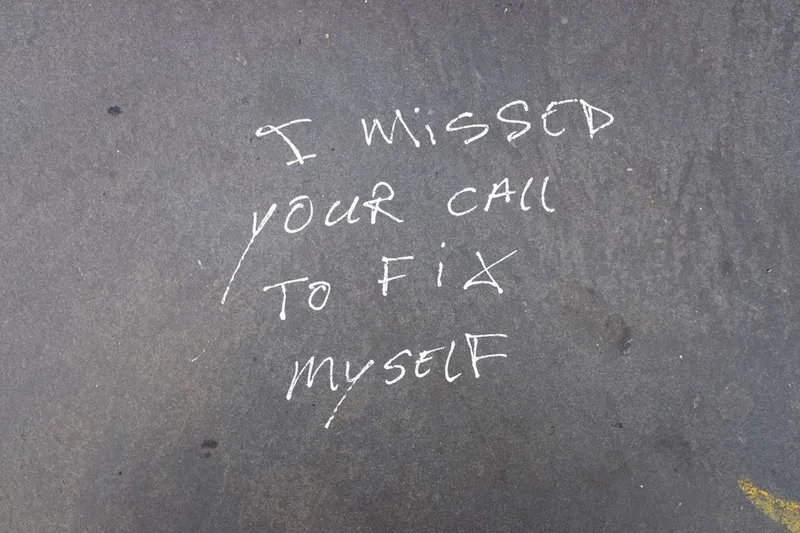 I MiSSED
YOUR CALL
TO FiX
MYSELF